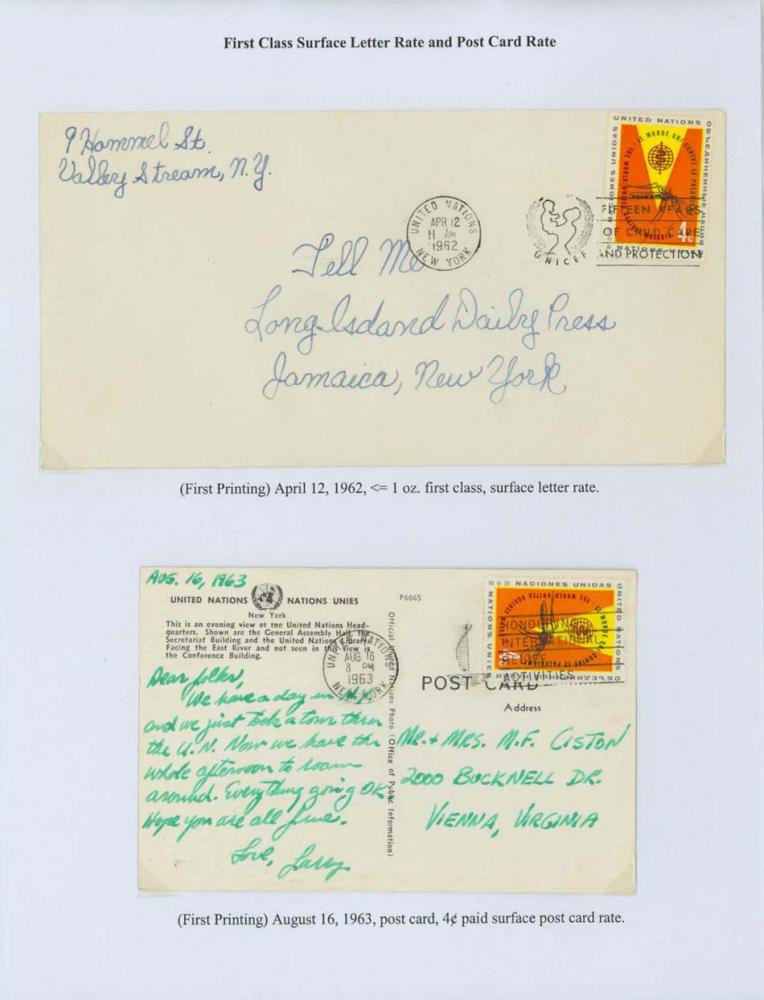 First Class Surface Letter Rate and Post Card Rate
9 Hammel St.
Valley Stream, N.Y.
UNITED NATIONS
NEW YORK
APR 12
11 AM
1962
UNICEF
FIFTEEN YEARS
OF CHILD CARE
AND PROTECTION
UNITED NATIONS
4c
Tell Me
Long Island Daily Press
Jamaica, New York
(First Printing) April 12, 1962, <= 1 oz. first class, surface letter rate.
AUG. 16, 1963
UNITED NATIONS NATIONS UNIES
New York
This is an evening view of the United Nations Head-
quarters. Shown are the General Assembly Hall, the
Secretariat Building and the United Nations Library
Facing the East River and not seen in this view is
the Conference Building.
P6665
Official United Nations Photo (Office of Public Information)
UNITED NATIONS
NEW YORK
AUG 16
8 PM
1963
NACIONES UNIDAS
HONOURING
INTERNATIONAL
RELIEF
ACTIVITIES
POST CARD
Address
Dear folks,
We have a day in N.Y.
and we just took a tour thru
the U.N. Now we have the
whole afternoon to roam
around. Everything going OK
Hope you are all fine.
Love, Larry
MR. + MRS. M.F. CISTON
2000 BUCKNELL DR.
VIENNA, VIRGINIA
(First Printing) August 16, 1963, post card, 4¢ paid surface post card rate.